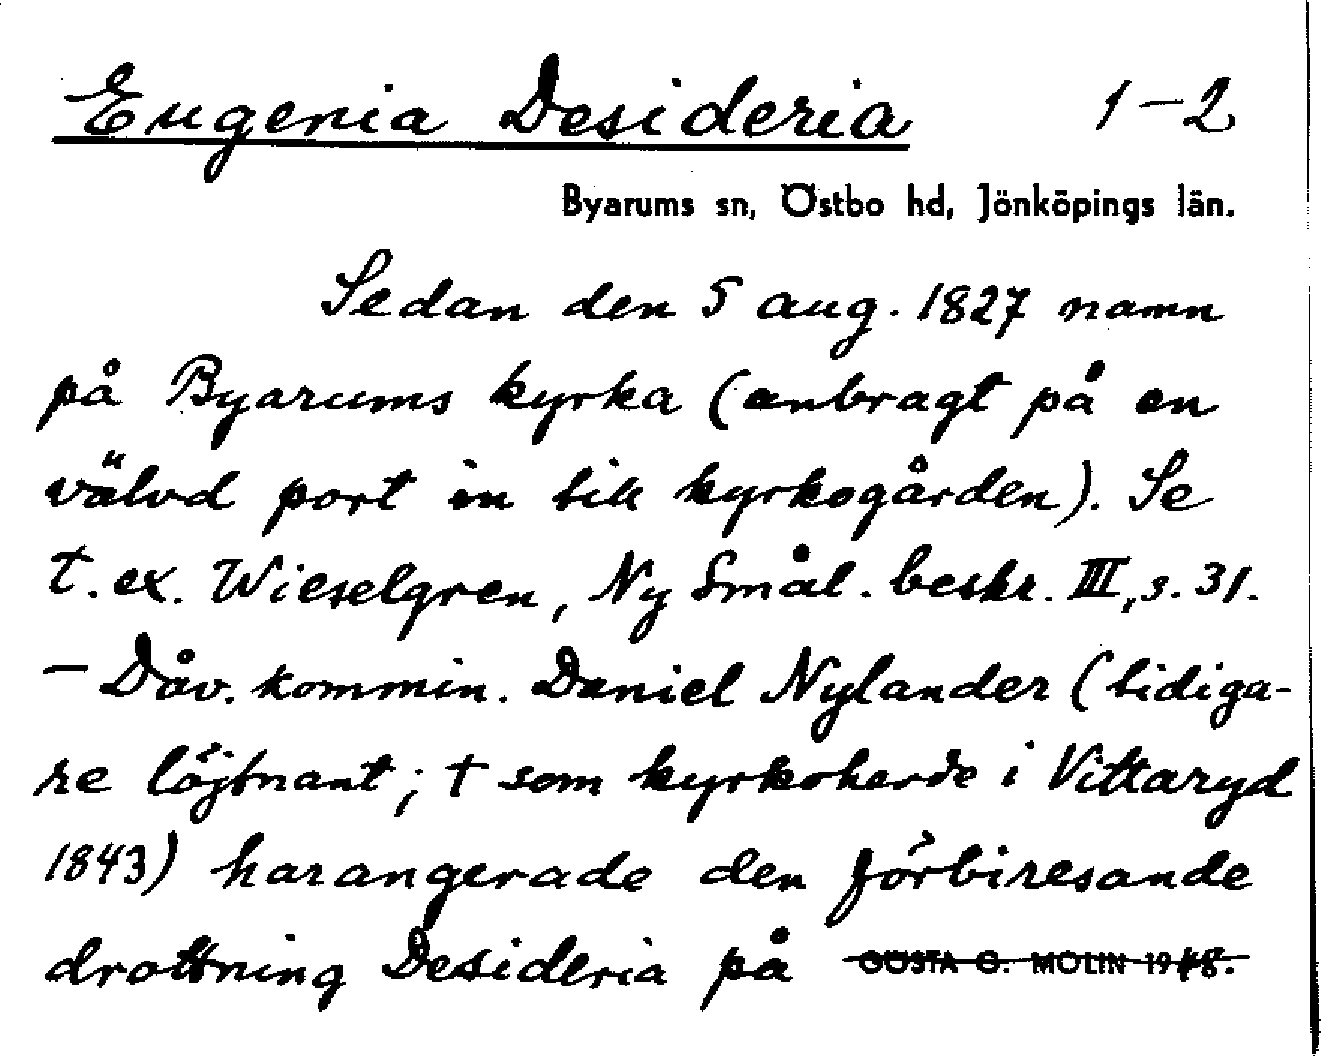 Eugenia Desideria 1-2
Byarums sn, Östbo hd, Jönköpings län.
Sedan den 5 aug. 1827 namn
på Byarums kyrka (anbragt på en
välvd port in till kyrkogården). Se
t. ex. Wieselgren, Ny Smål. beskr. III, s. 31.
– Dåv. kommin. Daniel Nylander (tidiga-
re löjtnant; † som kyrkoherde i Vittaryd
1843) harangerade den förbiresande
drottning Desideria på GÖSTA G. MOLIN 1948.